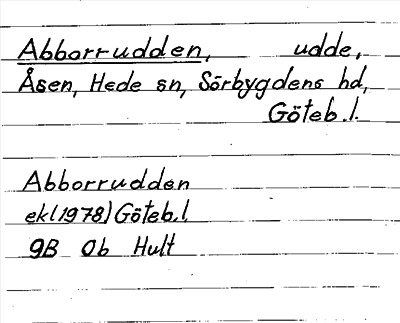 Abborrudden, udde,
Åsen, Hede sn, Sörbygdens hd,
Göteb.l.
Abborrudden
ekl(1978)Göteb.l.
9B Ob Hult